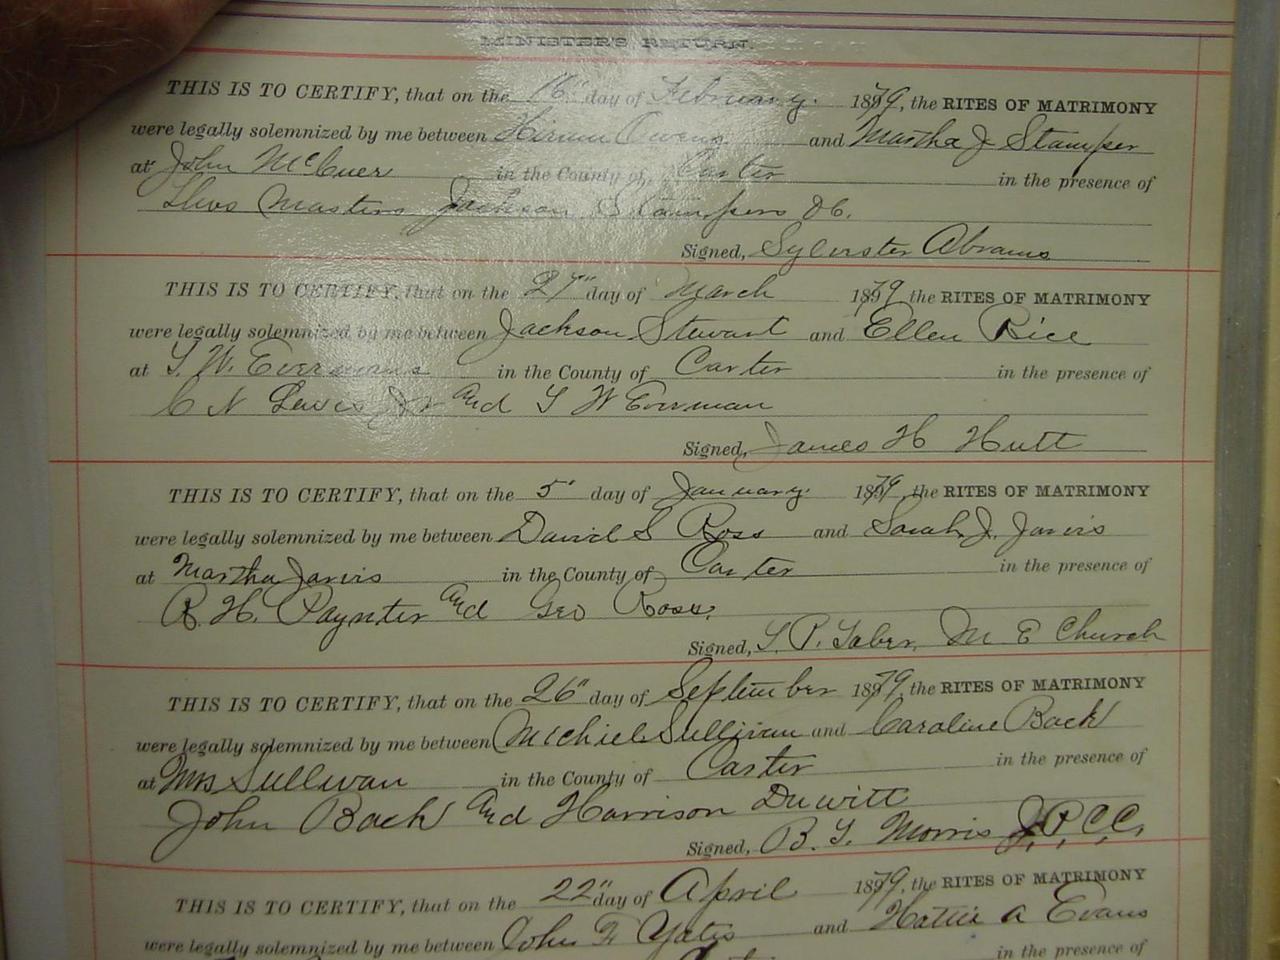 MINISTER'S RETURN.
THIS IS TO CERTIFY, that on the 16" day of February. 1879, the RITES OF MATRIMONY
were legally solemnized by me between Hiram Owens and Martha J Stamper
at John McGuer in the County of Carter in the presence of
Masters Jackson Stampers &c.
Signed, Sylvister Abrams
THIS IS TO CERTIFY, that on the 27" day of March 1879, the RITES OF MATRIMONY
were legally solemnized by me between Jackson Stewart and Ellen Rice
at S. W. Evermans in the County of Carter in the presence of
C N Lewis Jr and S W Everman
Signed, James H Hutt
THIS IS TO CERTIFY, that on the 5" day of January. 1879, the RITES OF MATRIMONY
were legally solemnized by me between David S Ross and Sarah J. Jarvis
at Martha Jarvis in the County of Carter in the presence of
R. H. Paynter and Geo Ross.
Signed, S. P. Taber, M E Church
THIS IS TO CERTIFY, that on the 26" day of September 1879, the RITES OF MATRIMONY
were legally solemnized by me between Michiel Sullivan and Caroline Back
at Mrs Sullivan in the County of Carter in the presence of
John Back and Harrison Duwitt
Signed, B. T. Morris J, P, C, C,
THIS IS TO CERTIFY, that on the 22" day of April 1879, the RITES OF MATRIMONY
were legally solemnized by me between John F Yates and Hattie A Evans
in the presence of